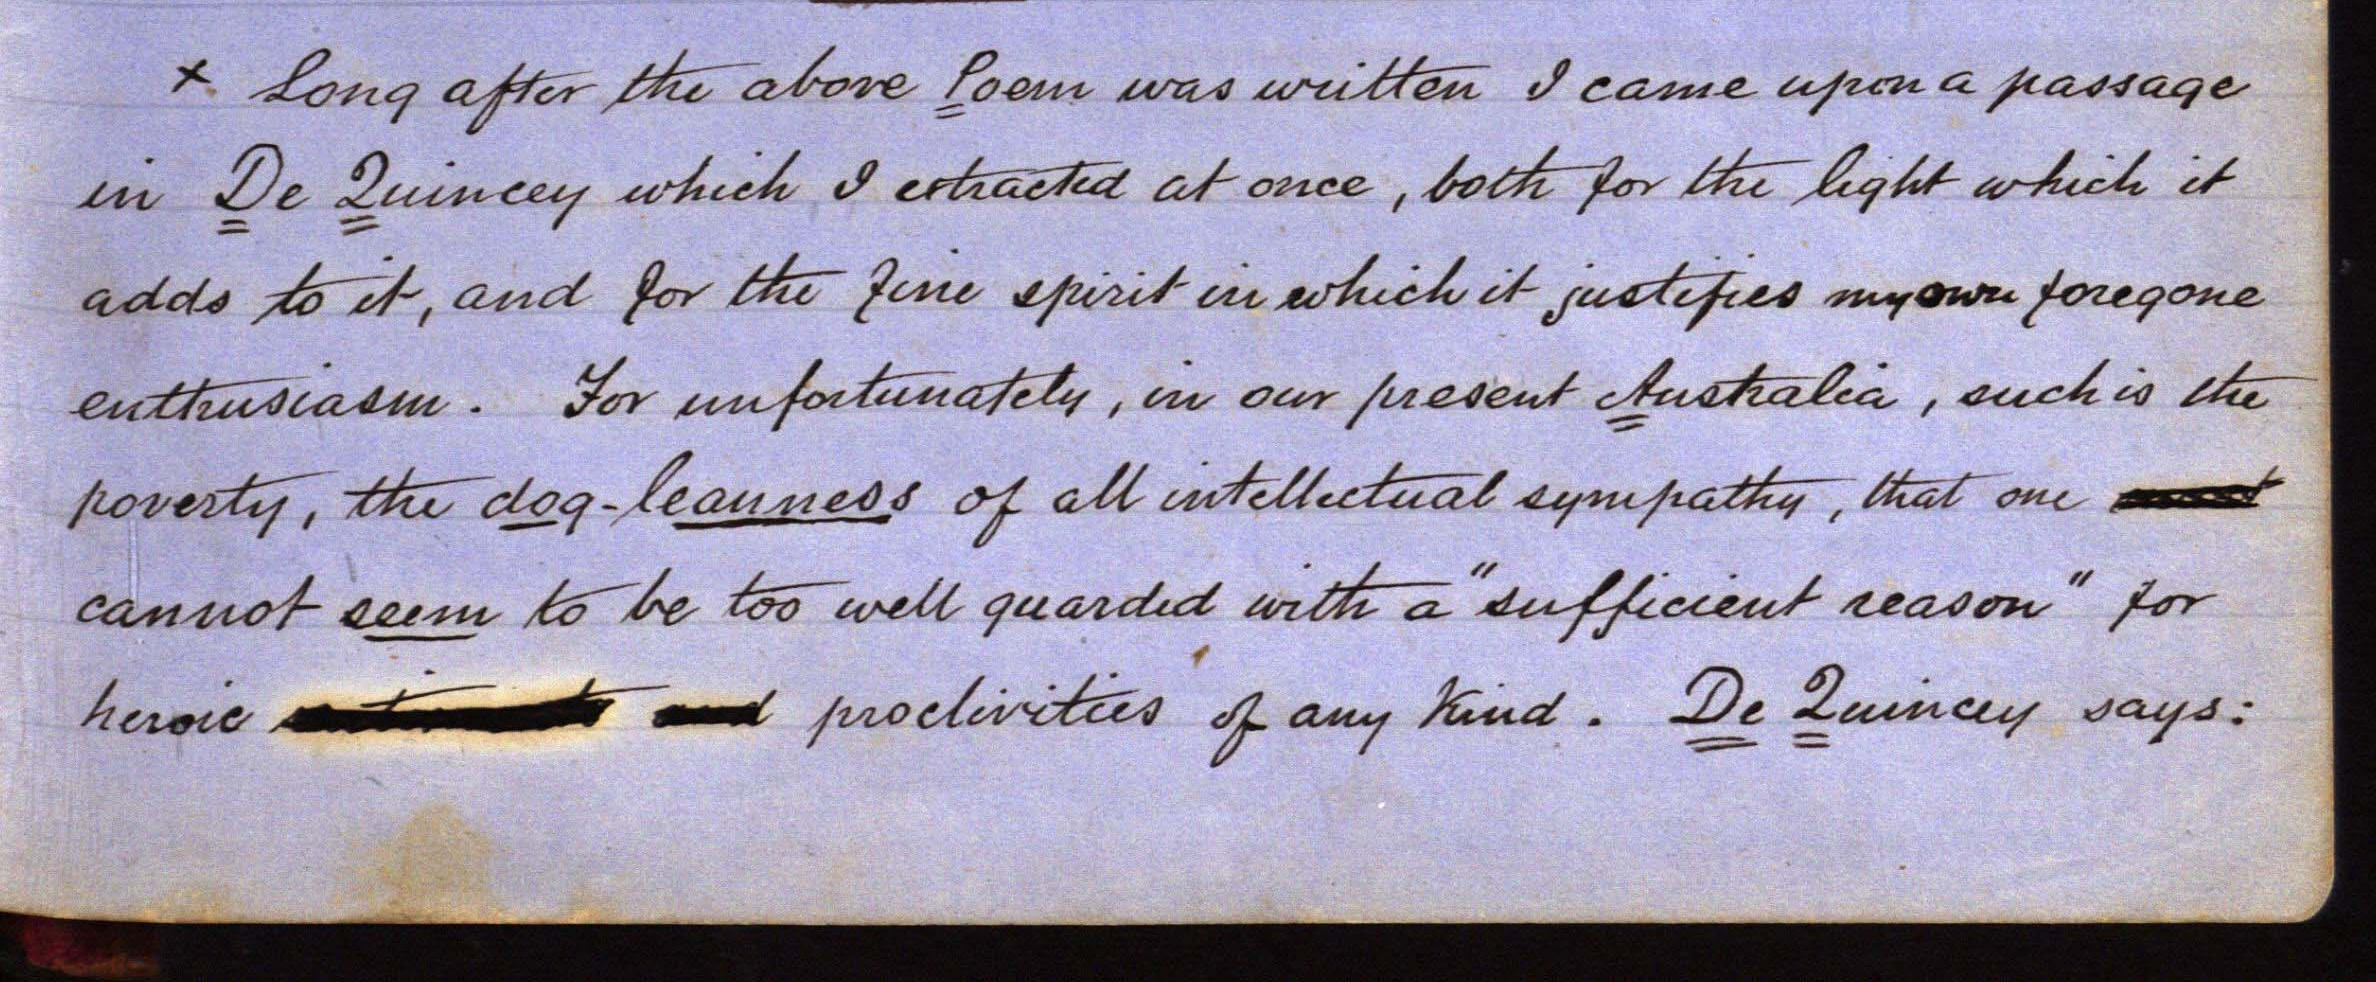 × Long after the above Poem was written I came upon a passage
in De Quincey which I extracted at once, both for the light which it
adds to it, and for the fine spirit in which it justifies my own foregone
enthusiasm. For unfortunately, in our present Australia, such is the
poverty, the dog-leanness of all intellectual sympathy, that one
cannot seem to be too well guarded with a "sufficient reason" for
heroic and proclivities of any kind. De Quincey says: